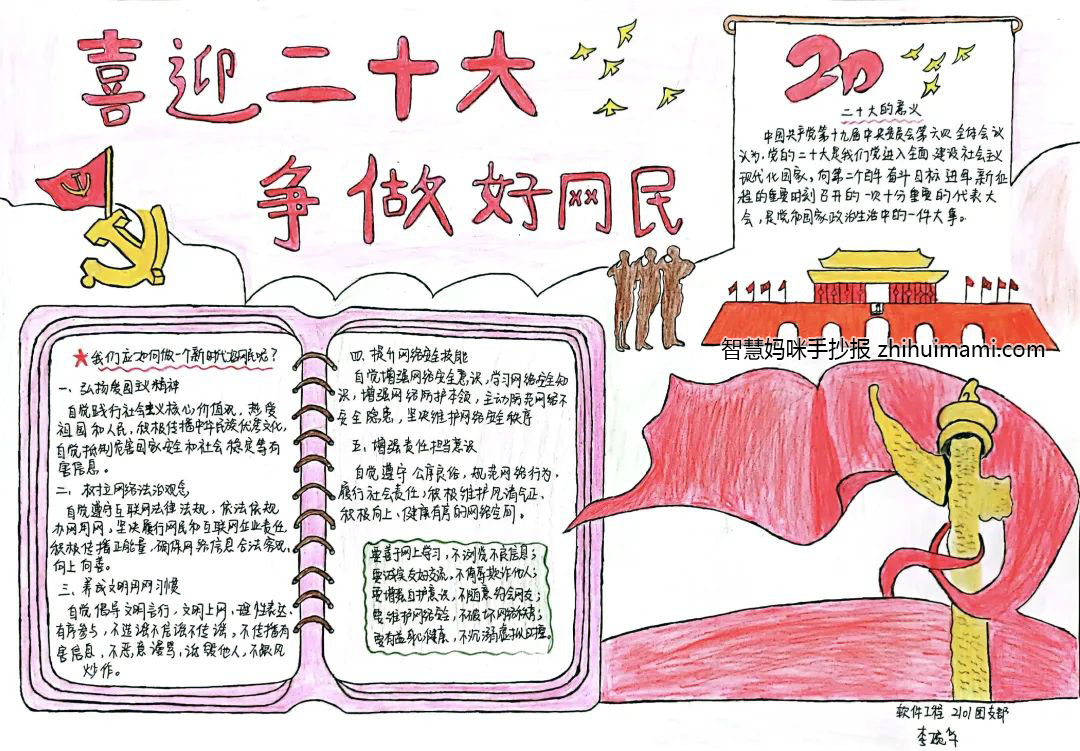 喜迎二十大
争做好网民
20
二十大的意义
中国共产党第十九届中央委员会第六次全体会议
认为,党的二十大是我们党进入全面建设社会主义
现代化国家,向第二个百年奋斗目标进军新征
程的重要时刻召开的一次十分重要的代表大
会,是党和国家政治生活中的一件大事。
智慧妈咪手抄报 zhihuimami.com
★我们应如何做一个新时代好网民呢?
一、弘扬爱国主义精神
自觉践行社会主义核心价值观,热爱
祖国和人民,积极传播中华民族优秀文化,
自觉抵制危害国家安全和社会稳定等有
害信息。
二、树立网络法治观念
自觉遵守互联网法律法规,依法依规
办网用网,坚决履行网民和互联网企业责任
积极传播正能量,确保网络信息合法客观、
向上向善。
三、养成文明用网习惯
自觉倡导文明言行,文明上网、理性表达、
有序参与,不造谣不信谣不传谣,不传播有
害信息,不恶意谩骂,诋毁他人,不跟风
炒作。
四、提升网络安全技能
自觉增强网络安全意识,学习网络安全知
识,增强网络防护本领,主动防范网络不
安全隐患,坚决维护网络安全秩序
五、增强责任担当意识
自觉遵守公序良俗,规范网络行为,
履行社会责任,积极维护风清气正、
积极向上、健康有序的网络空间。
要善于网上学习,不浏览不良信息;
要诚实友好交流,不侮辱欺诈他人;
要增强自护意识,不随意约会网友;
要维护网络安全,不破坏网络秩序;
要有益身心健康,不沉溺虚拟时空。
软件工程 2101团支部